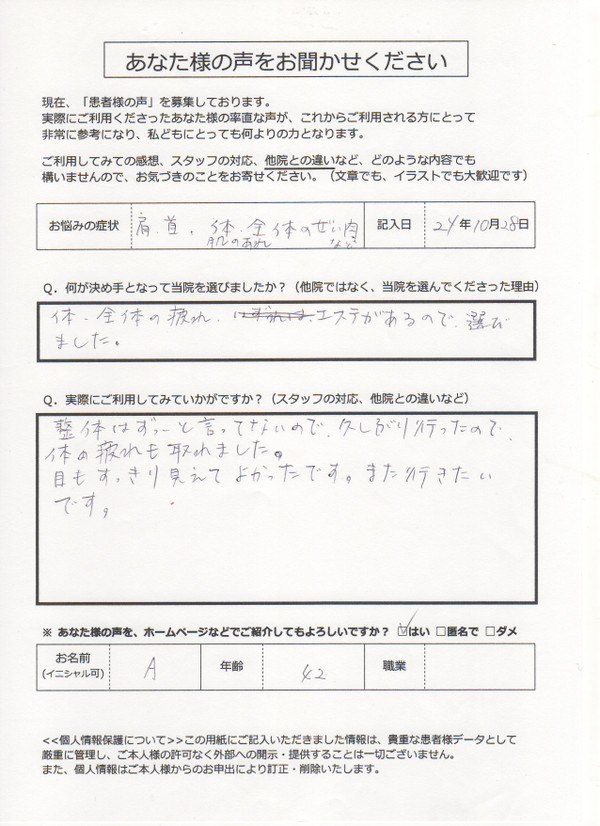 あなた様の声をお聞かせください
現在、「患者様の声」を募集しております。
実際にご利用くださったあなた様の率直な声が、これからご利用される方にとって
非常に参考になり、私どもにとっても何よりの力となります。
ご利用してみての感想、スタッフの対応、他院との違いなど、どのような内容でも
構いませんので、お気づきのことをお寄せください。（文章でも、イラストでも大歓迎です）
お悩みの症状 肩、首、体・全体のぜい肉 記入日 24年10月28日
肌のあれ など
Q．何が決め手となって当院を選びましたか？（他院ではなく、当院を選んでくださった理由）
体・全体の疲れ、エステがあるので、選び
ました。
Q．実際にご利用してみていかがですか？（スタッフの対応、他院との違いなど）
整体はずっーと言ってないので、久しぶり行ったので、
体の疲れも取れました。
目もすっきり見えてよかったです。また行きたい
です。
※ あなた様の声を、ホームページなどでご紹介してもよろしいですか？ ☑はい □匿名で □ダメ
お名前 A 年齢 42 職業
(イニシャル可)
<<個人情報保護について>>この用紙にご記入いただきました情報は、貴重な患者様データとして
厳重に管理し、ご本人様の許可なく外部への開示・提供することは一切ございません。
また、個人情報はご本人様からのお申出により訂正・削除いたします。